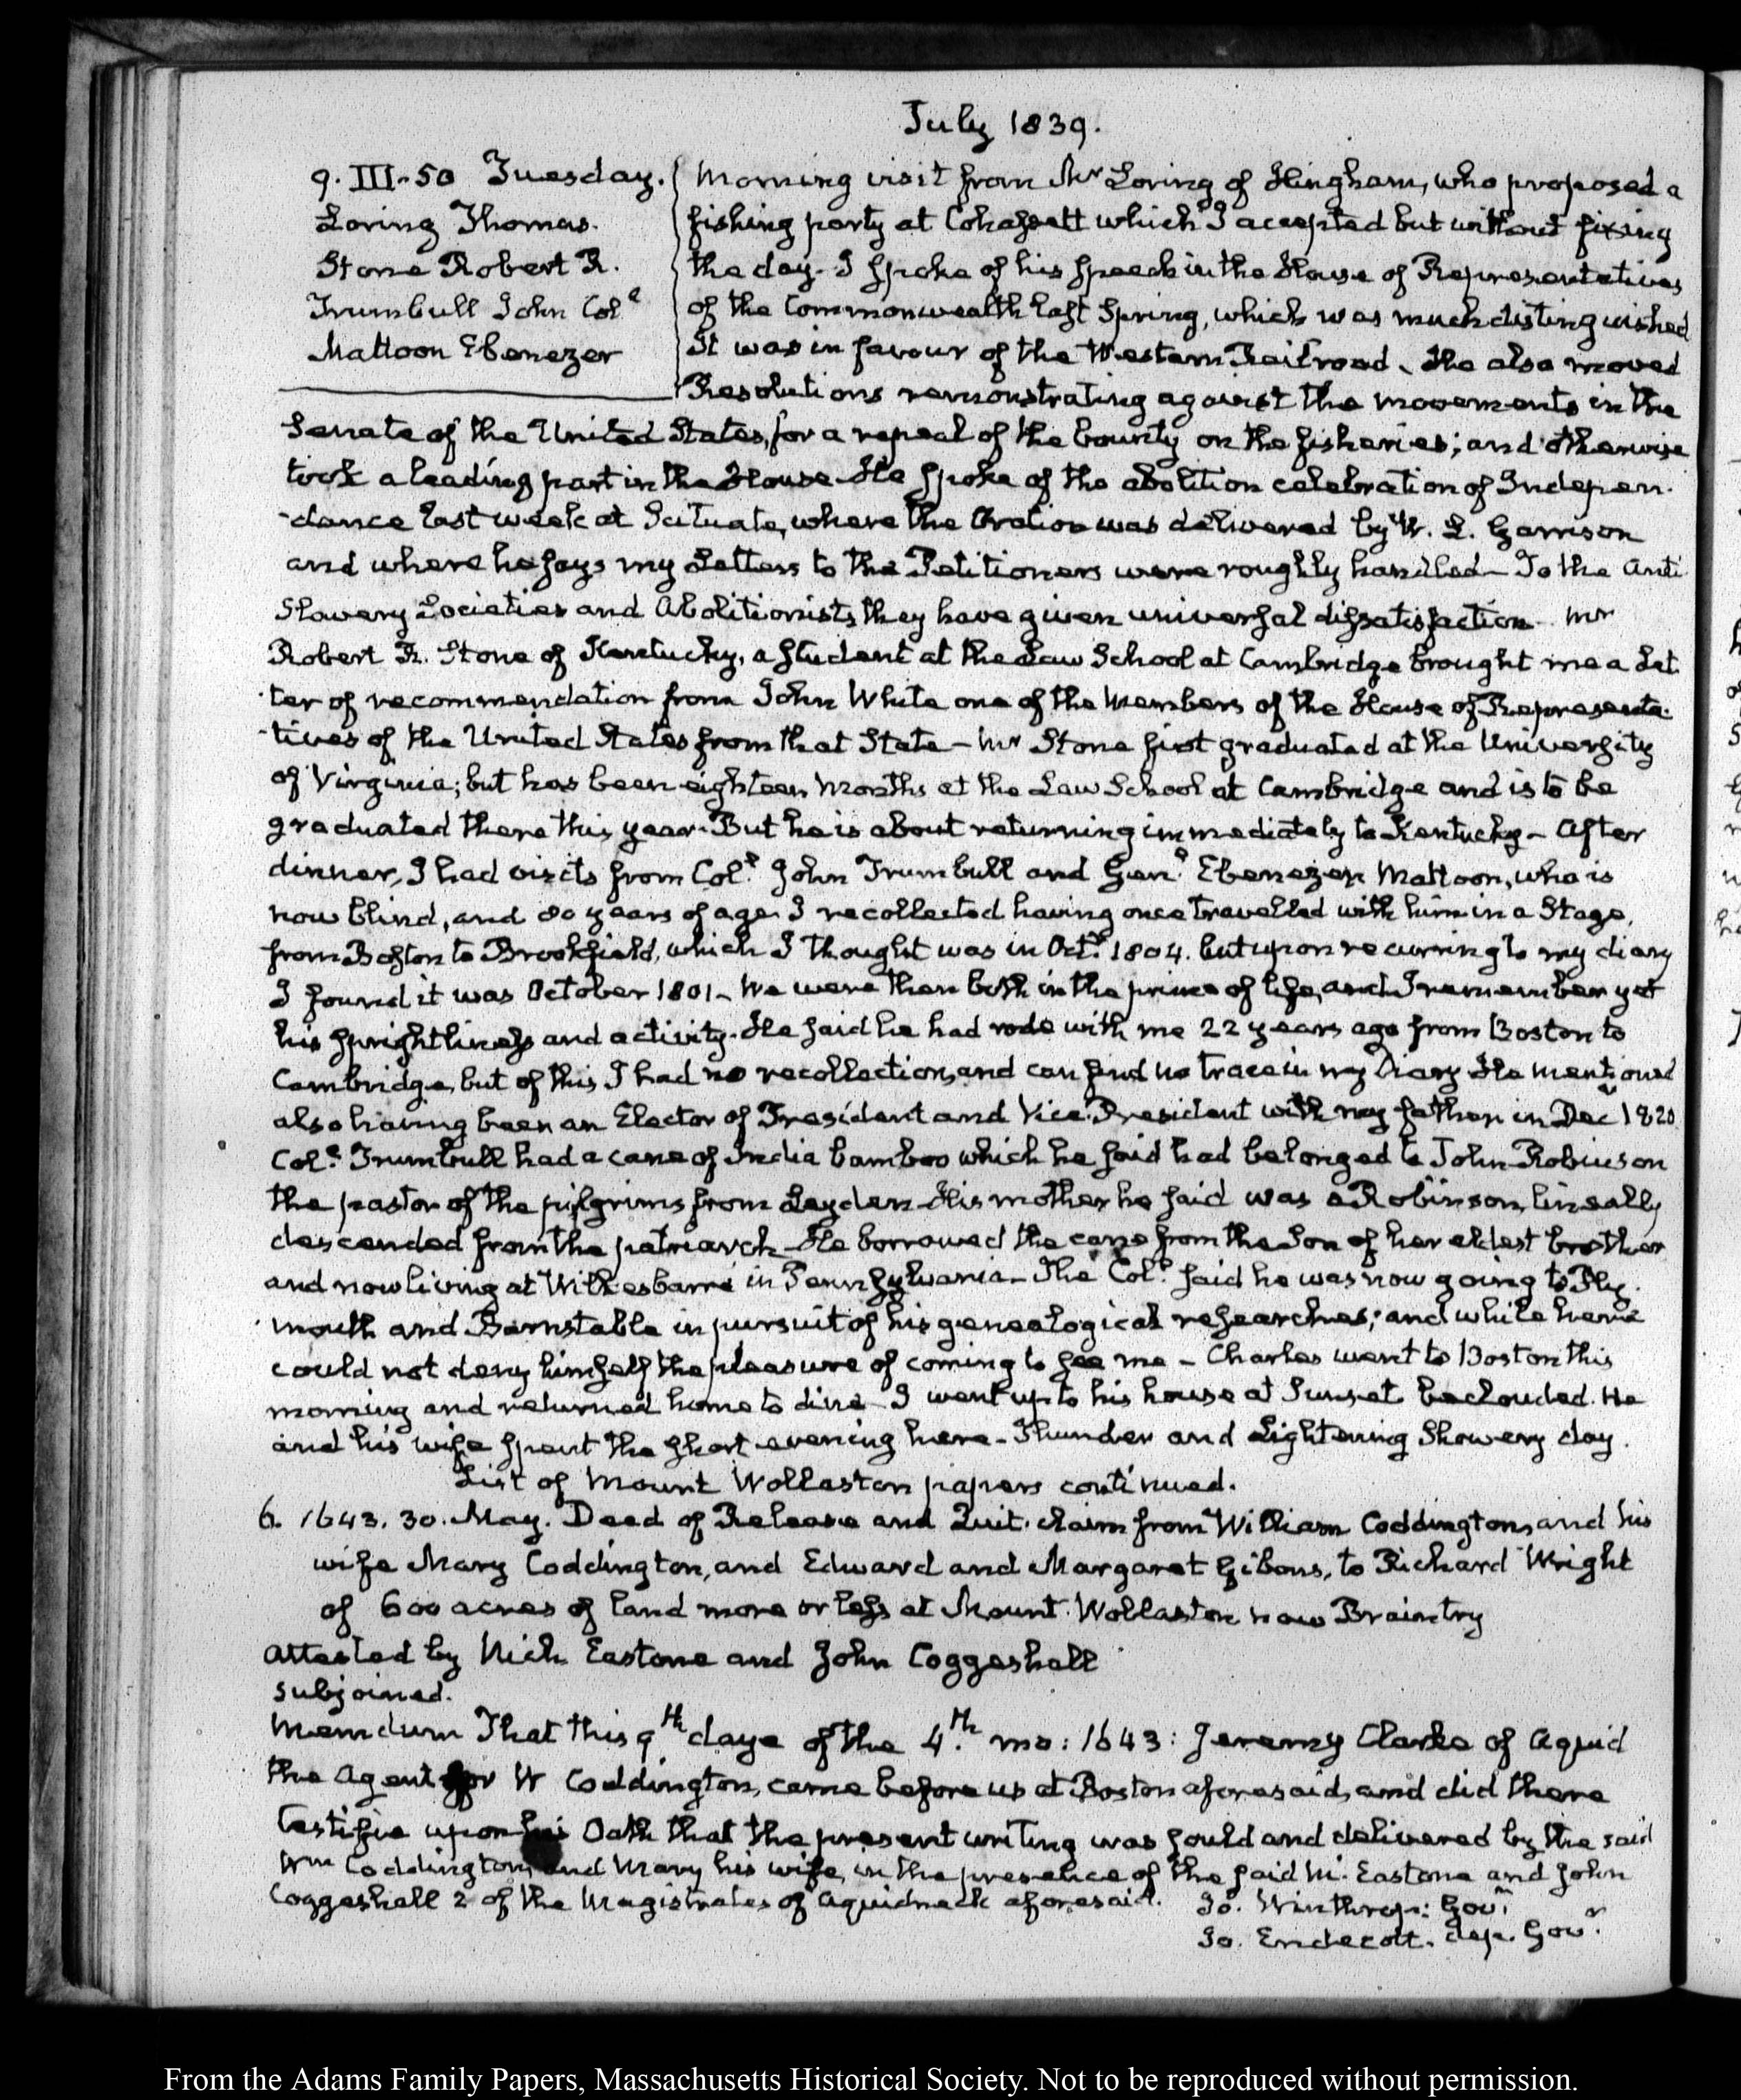 July 1839.
9. III-50 Tuesday.
Loring Thomas.
Stone Robert R.
Trumbull John Col.l
Mattoon Ebenezer
Morning visit from Mr Loring of Hingham, who proposed a
fishing party at Cohassett which I accepted but without fixing
the day. I spoke of his speech in the House of Representatives
of the Commonwealth last Spring, which was much distinguished
It was in favour of the Western Railroad. He also moved
Resolutions remonstrating against the movements in the
Senate of the United States, for a repeal of the bounty on the fisheries; and otherwise
took a leading part in the House. He spoke of the abolition celebration of Indepen-
-dance last week at Scituate, where the Oration was delivered by W. L. Garrison
and where he says my Letters to the Petitioners were roughly handled— To the Anti
Slavery Societies and Abolitionists, they have given universal dissatisfaction. Mr
Robert R. Stone of Kentucky, a Student at the Law School at Cambridge brought me a Let
-ter of recommendation from John White one of the Members of the House of Representa-
-tives of the United States from that State— Mr Stone first graduated at the University
of Virginia; but has been eighteen Months at the Law School at Cambridge and is to be
graduated there this year. But he is about returning immediately to Kentucky— After
dinner, I had visits from Col.l John Trumbull and Gen.l Ebenezer Mattoon, who is
now blind, and 80 years of age. I recollected having once travelled with him in a Stage,
from Boston to Brookfield, which I thought was in Oct.r 1804. but upon recurring to my diary
I found it was October 1801— We were then both in the prime of life, and I remember yet
his sprightliness and activity. He said he had rode with me 22 years ago from Boston to
Cambridge, but of this I had no recollection, and can find no trace in my Diary He mentioned
also having been an Elector of President and Vice-President with my father in Dec 1820.
Col.l Trumbull had a cane of India bamboo which he said had belonged to John Robinson
the pastor of the pilgrims from Leyden. His mother he said was a Robinson, lineally
descended from the patriarch— He borrowed the cane from the Son of her eldest brother
and now living at Wilkesbarre in Pennsylvania— The Col.l said he was now going to Ply-
-mouth and Barnstable in pursuit of his genealogical researches; and while here
could not deny himself the pleasure of coming to see me— Charles went to Boston this
morning and returned home to dine— I went up to his house at Sunset beclouded. He
and his wife spent the short evening here— Thunder and Lightening Showery day.
List of Mount Wollaston papers continued.
6. 1643. 30. May. Deed of Release and Quit-claim from William Coddington, and his
wife Mary Coddington, and Edward and Margaret Gibons, to Richard Wright
of 600 acres of land more or less at Mount Wollaston now Braintry
Attested by Nich Eastone and John Coggeshall
subjoined.
Memdum That this 9th daye of the 4.th mo: 1643: Jeremy Clarke of Aquid
the Agent for W Coddington, came before us at Boston aforesaid, and did there
testifie upon his Oath that the present writing was sould and delivered by the said
Wm Coddington, and Mary his wife, in the presence of the said Ni. Eastone and John
Coggeshall 2 of the Magistrates of Aquidneck aforesaid.
Jo. Winthrop: Gov.r
Jo. Endecott. dep. Gov.r
From the Adams Family Papers, Massachusetts Historical Society. Not to be reproduced without permission.